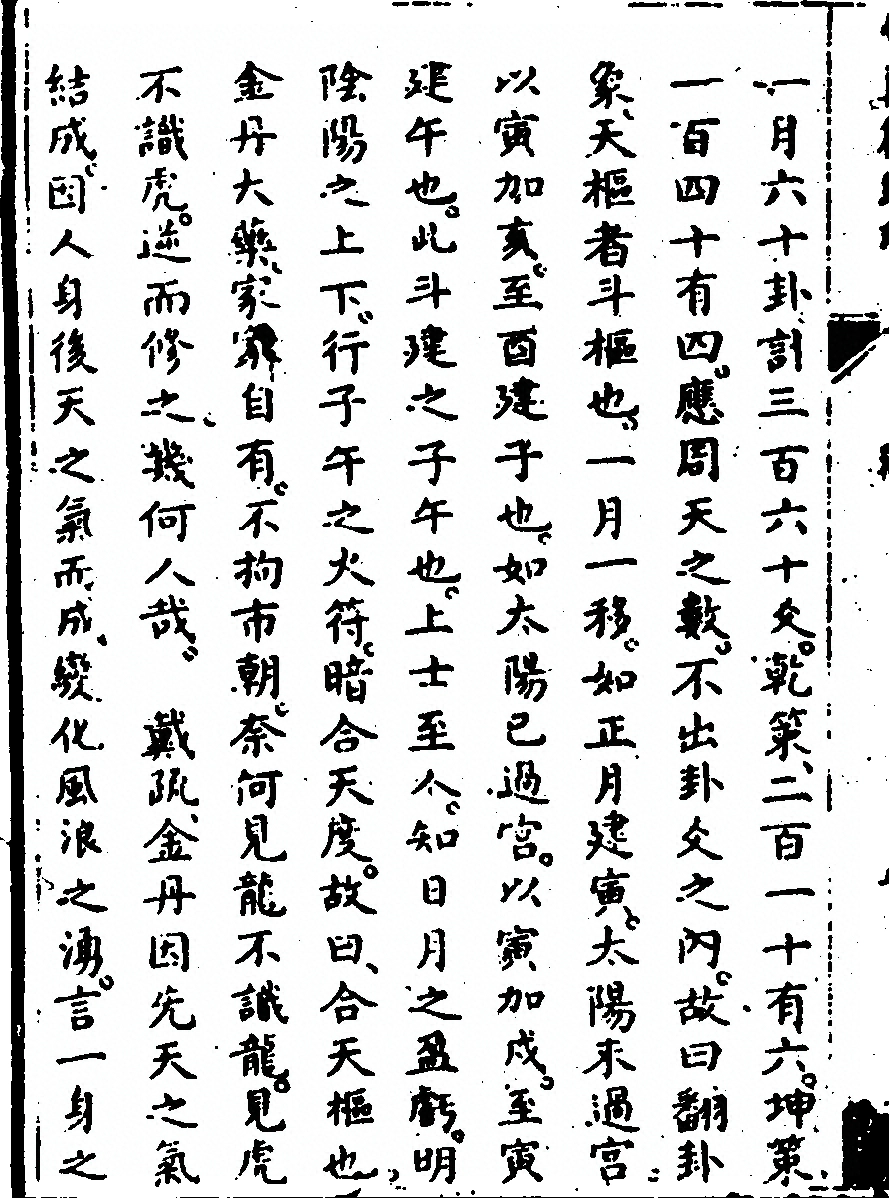 一月六十卦、計三百六十爻。乾策、二百一十有六。坤策、
一百四十有四。應周天之數。不出卦爻之內。故曰翻卦
象、天樞者斗樞也。一月一移。如正月建寅、太陽未過宮
以寅加亥。至酉建子也。如太陽已過宮。以寅加戌。至寅
建午也。此斗建之子午也。上士至人。知日月之盈虧。明
陰陽之上下。行子午之火符。暗合天度。故曰、合天樞也、
金丹大藥、家家自有。不拘市朝。奈何見龍不識龍。見虎
不識虎。逆而修之、幾何人哉。 戴疏、金丹因先天之氣
結成。因人身後天之氣而成、變化風浪之湧。言一身之